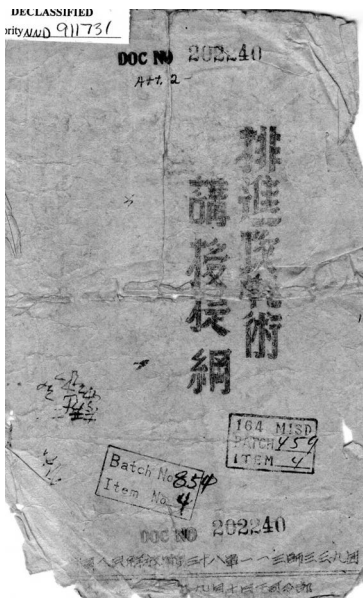 DECLASSIFIED
ority NND 911731
DOC NO 202240
Att. 2
排進攻戰術
講授提綱
164 MISD
BATCH 459
ITEM 4
Batch No 854
Item No 4
DOC NO 202240